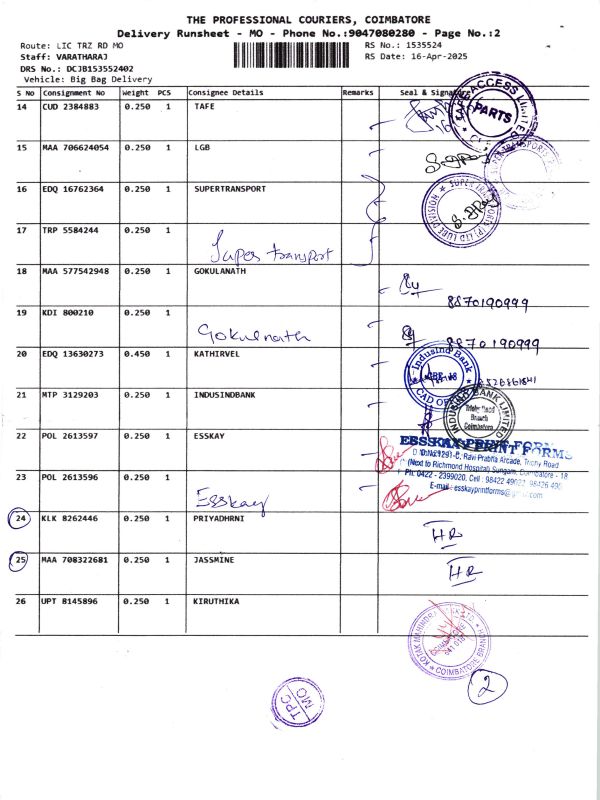 THE PROFESSIONAL COURIERS, COIMBATORE
Delivery Runsheet - MO - Phone No.:9047080280 - Page No.:2
Route: LIC TRZ RD MO
RS No.: 1535524
Staff: VARATHARAJ
RS Date: 16-Apr-2025
DRS No.: DCJB153552402
Vehicle: Big Bag Delivery
S No Consignment No Weight PCS Consignee Details Remarks Seal & Signature
14 CUD 2384883 0.250 1 TAFE
ACCESS LIMITED
PARTS
15 MAA 706624054 0.250 1 LGB
16 EDQ 16762364 0.250 1 SUPERTRANSPORT
SUPER TRANSPORTS (P) LTD LUBE DIVISION
17 TRP 5584244 0.250 1
Super transport
18 MAA 577542948 0.250 1 GOKULNATH
8870190999
19 KDI 800210 0.250 1
Gokulnath
8870190999
20 EDQ 13630273 0.450 1 KATHIRVEL
IndusInd Bank
CAD OFFICE
21 MTP 3129203 0.250 1 INDUSINDBANK
INDUSIND BANK LIMITED
Trichy Road
Branch
Coimbatore
22 POL 2613597 0.250 1 ESSKAY
ESSKAY PRINT FORMS
Ravi Prabha Arcade, Trichy Road
(Next to Richmond Hospital) Sungam, Coimbatore - 18
Ph: 0422 - 2399020, Cell : 98422 49022, 98426 49
E-mail : esskayprintforms@gmail.com
23 POL 2613596 0.250 1
Esskay
24 KLK 8262446 0.250 1 PRIYADHRNI
HR
25 MAA 708322681 0.250 1 JASSMINE
HR
26 UPT 8145896 0.250 1 KIRUTHIKA
KOTAK MAHINDRA BANK LTD.
COIMBATORE
641 018
COIMBATORE BRANCH
2
TPC
MO